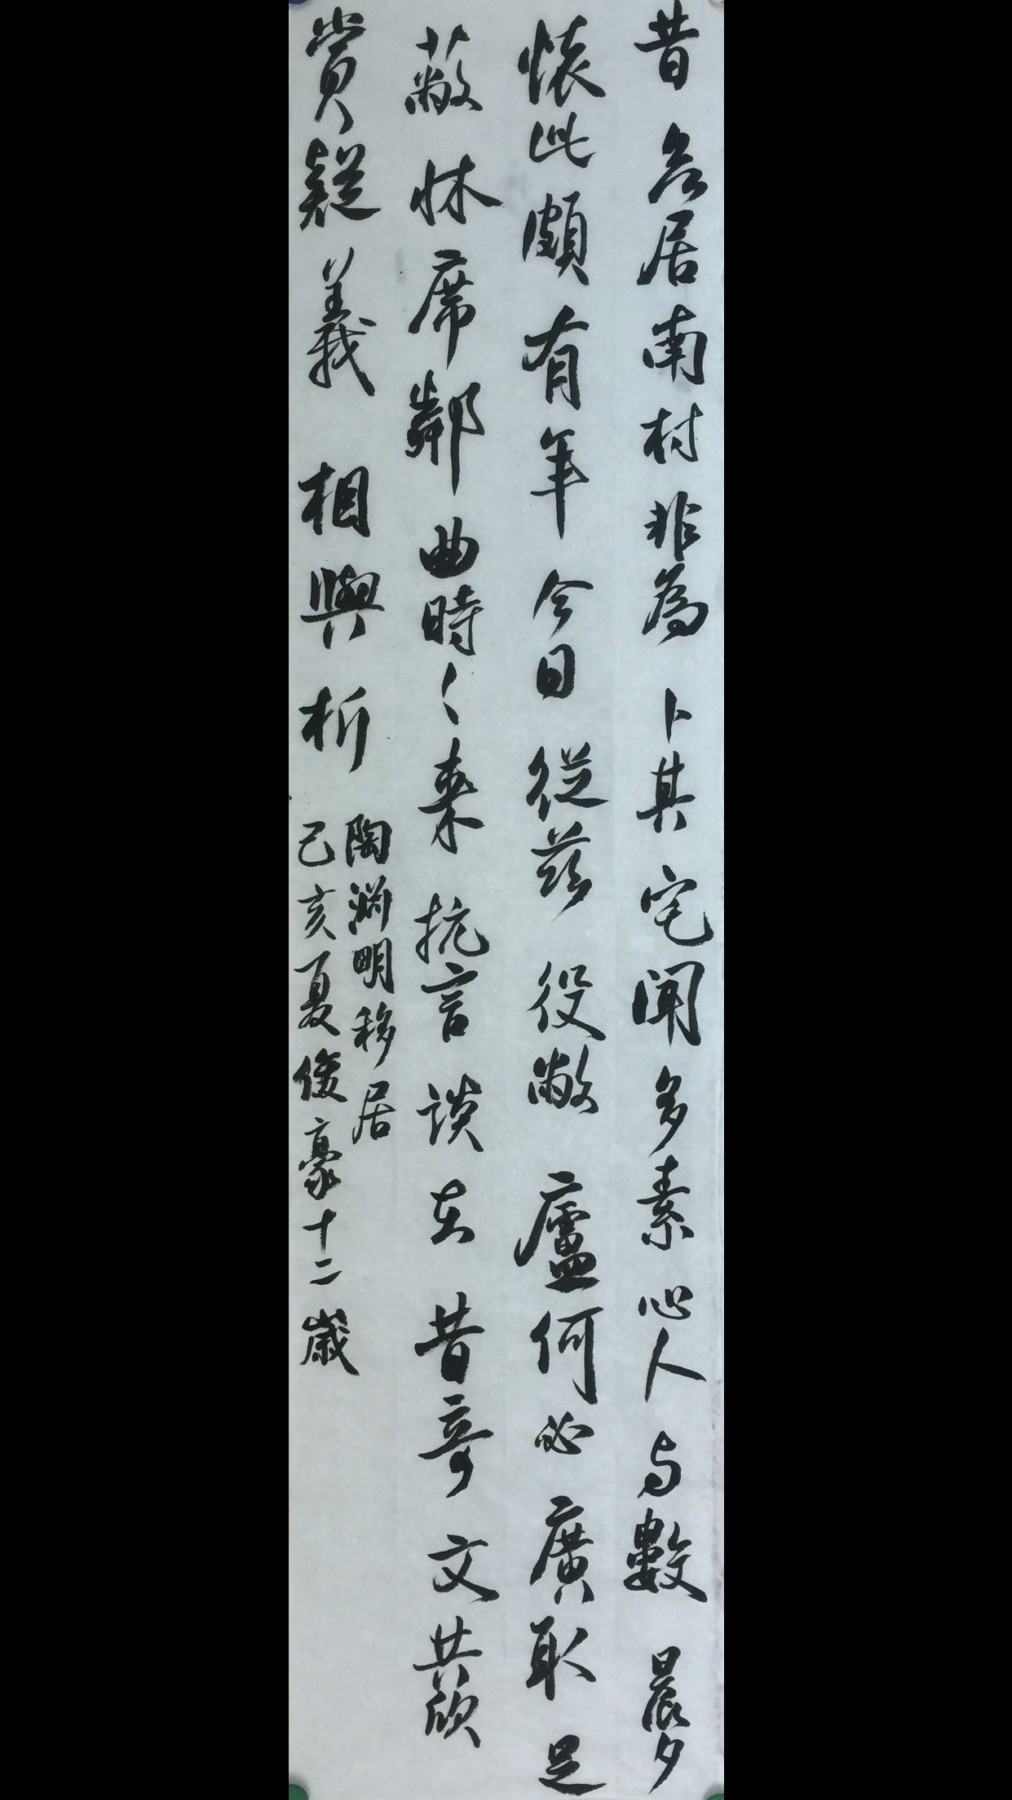 昔居南村非為卜其宅聞多素心人与數晨夕
懷此頗有年今日從茲役敝廬何必廣取足
蔽牀席鄰曲時〻来抗言談在昔奇文共欣
賞疑義相與析
陶淵明移居
己亥夏俊豪十二歲